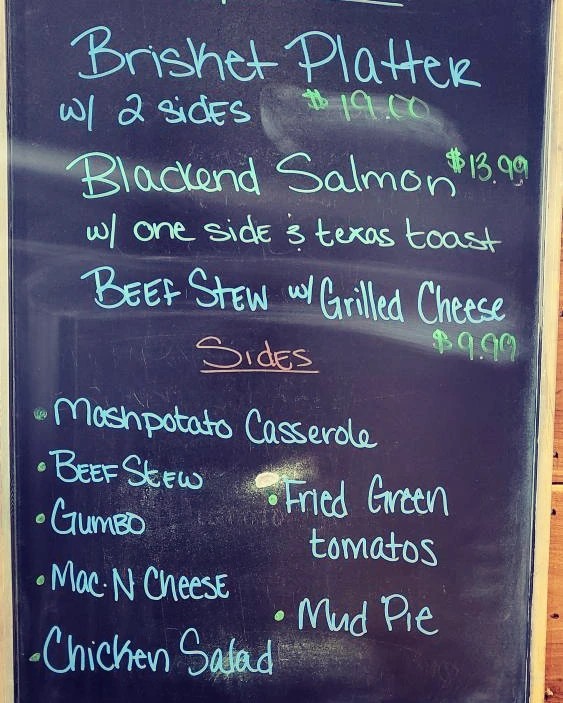 Brisket Platter
w/ 2 sides $19.00
Blackend Salmon $13.99
w/ one side & texas toast
Beef Stew w/ Grilled Cheese
$9.99
Sides
• Mashpotato Casserole
• Beef Stew
• Fried Green
• Gumbo
tomatos
• Mac•N Cheese
• Mud Pie
• Chicken Salad